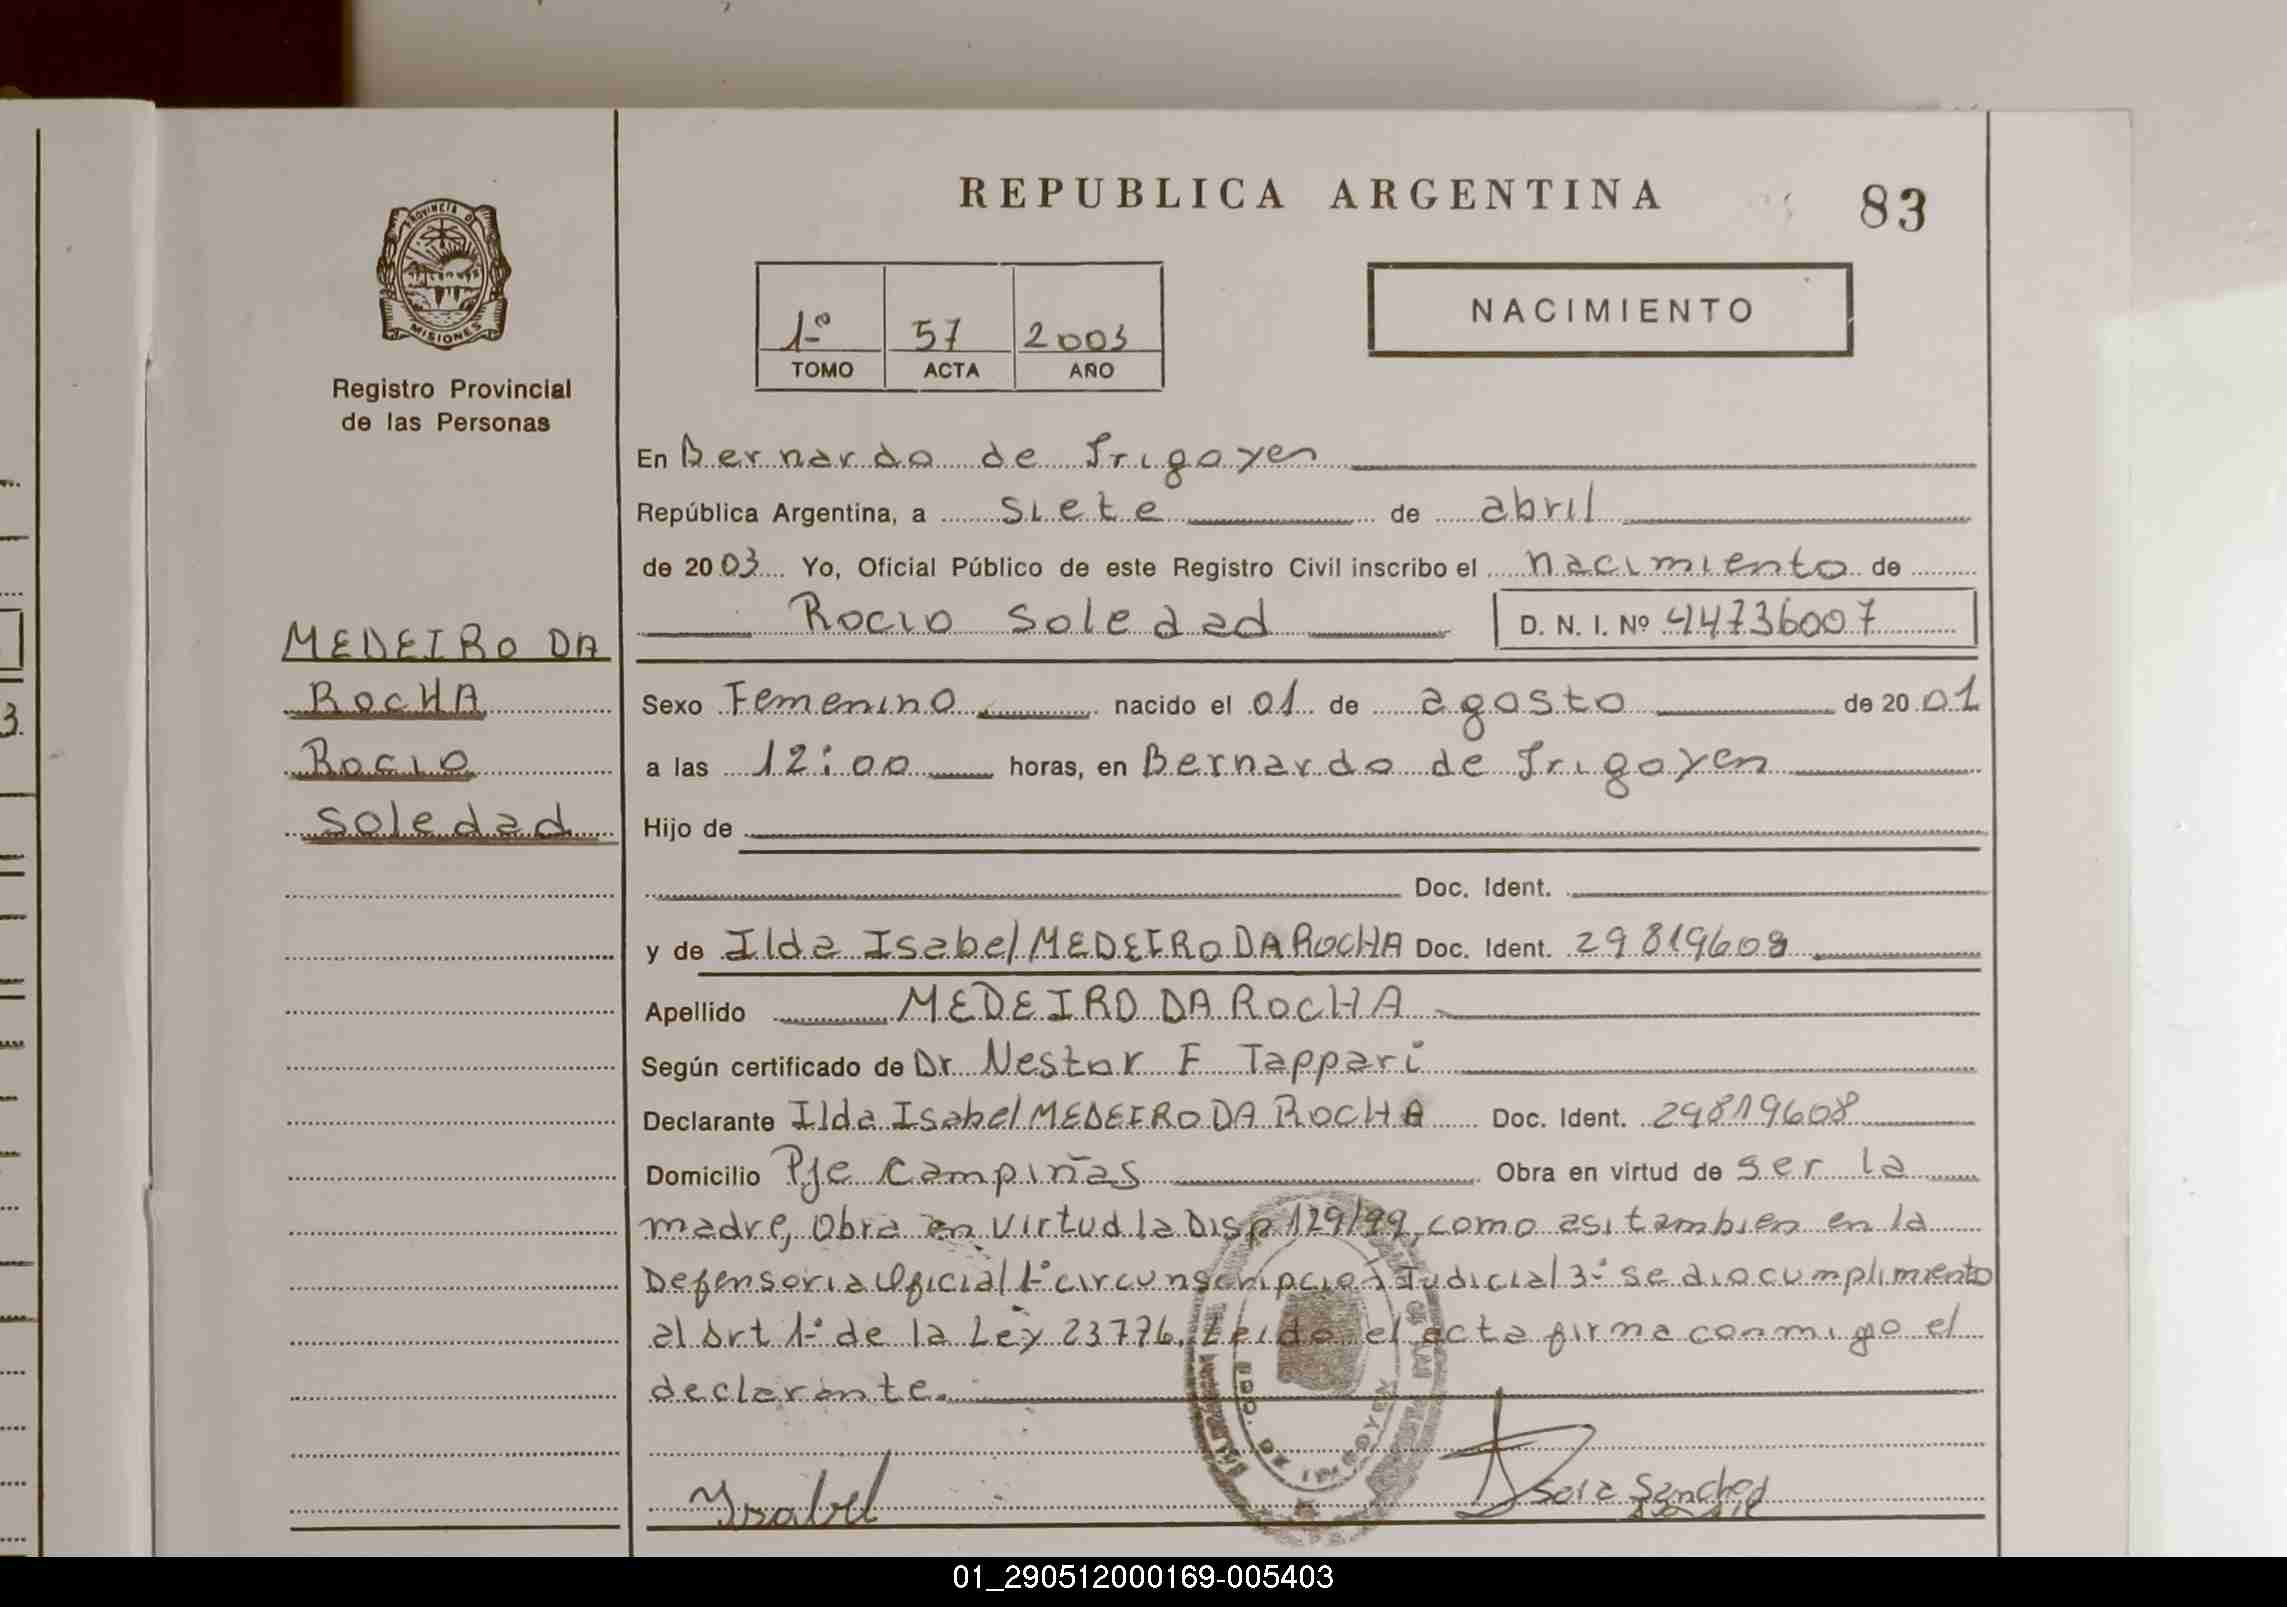 REPUBLICA ARGENTINA
83
PROVINCIA DE
MISIONES
Registro Provincial
de las Personas
1º 57 2003
TOMO ACTA AÑO
NACIMIENTO
En Bernardo de Irigoyen
República Argentina, a siete de abril
de 2003 Yo, Oficial Público de este Registro Civil inscribo el nacimiento de
Rocio Soledad D. N. I. Nº 44736007
MEDEIRO DA
ROCHA
Rocio
Soledad
Sexo Femenino nacido el 01 de agosto de 2001
a las 12:00 horas, en Bernardo de Irigoyen
Hijo de
Doc. Ident.
y de Ilda Isabel MEDEIRO DA ROCHA Doc. Ident. 29819608
Apellido MEDEIRO DA ROCHA
Según certificado de Dr Nestor F Tappari
Declarante Ilda Isabel MEDEIRO DA ROCHA Doc. Ident. 29819608
Domicilio Pje Campiñas Obra en virtud de ser la
madre, Obra en virtud la Disp 129/99, como asi tambien en la
Defensoria Oficial 1º circunscripcion Judicial 3º se dio cumplimiento
al Art 1º de la Ley 23776. Leido el acta firma conmigo el
declarante.
Ysabel
01_290512000169-005403